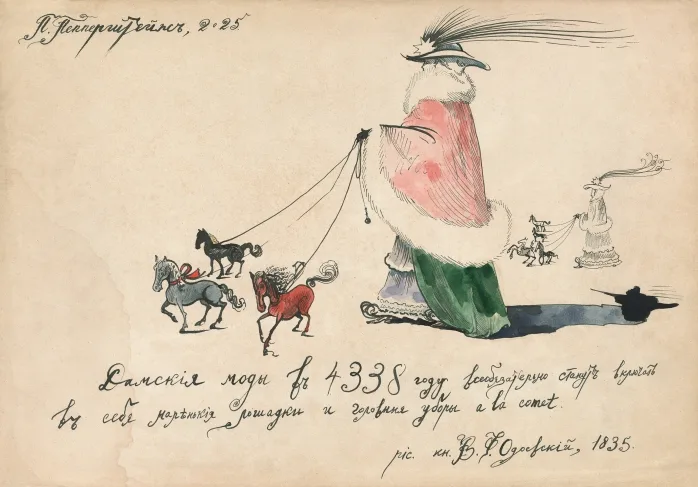 П. Пепперштейнъ, 2025
Дамскія моды въ 4338 году всеобязательно станутъ включать
въ себе маленькія лошадки и головные уборы a la comet.
ріс. кн. В. Ѳ. Одоевскій, 1835.